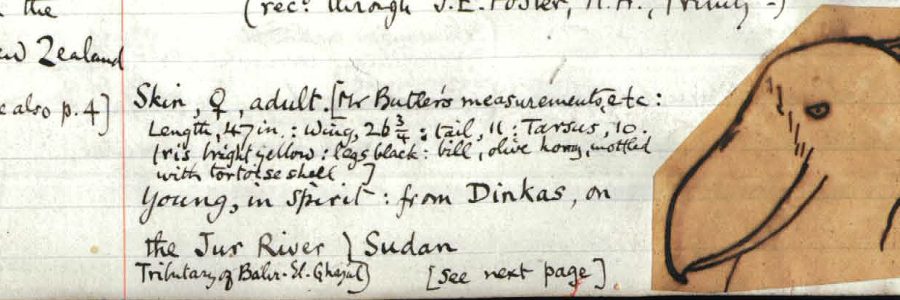 the (rec? through J.E. Foster, M.A., Trinity -)
ew Zealand
e also p. 4] Skin, ♀, adult. [Mr Butler's measurements, etc:
Length, 47 in. : wing, 26 3/4 : tail, 11 : Tarsus, 10.
Iris bright yellow : legs black : bill, olive horny, mottled
with tortoise shell ]
Young, in spirit : from Dinkas, on
the Jur River } Sudan
Tributary of Bahr-El-Ghazal) [see next page].